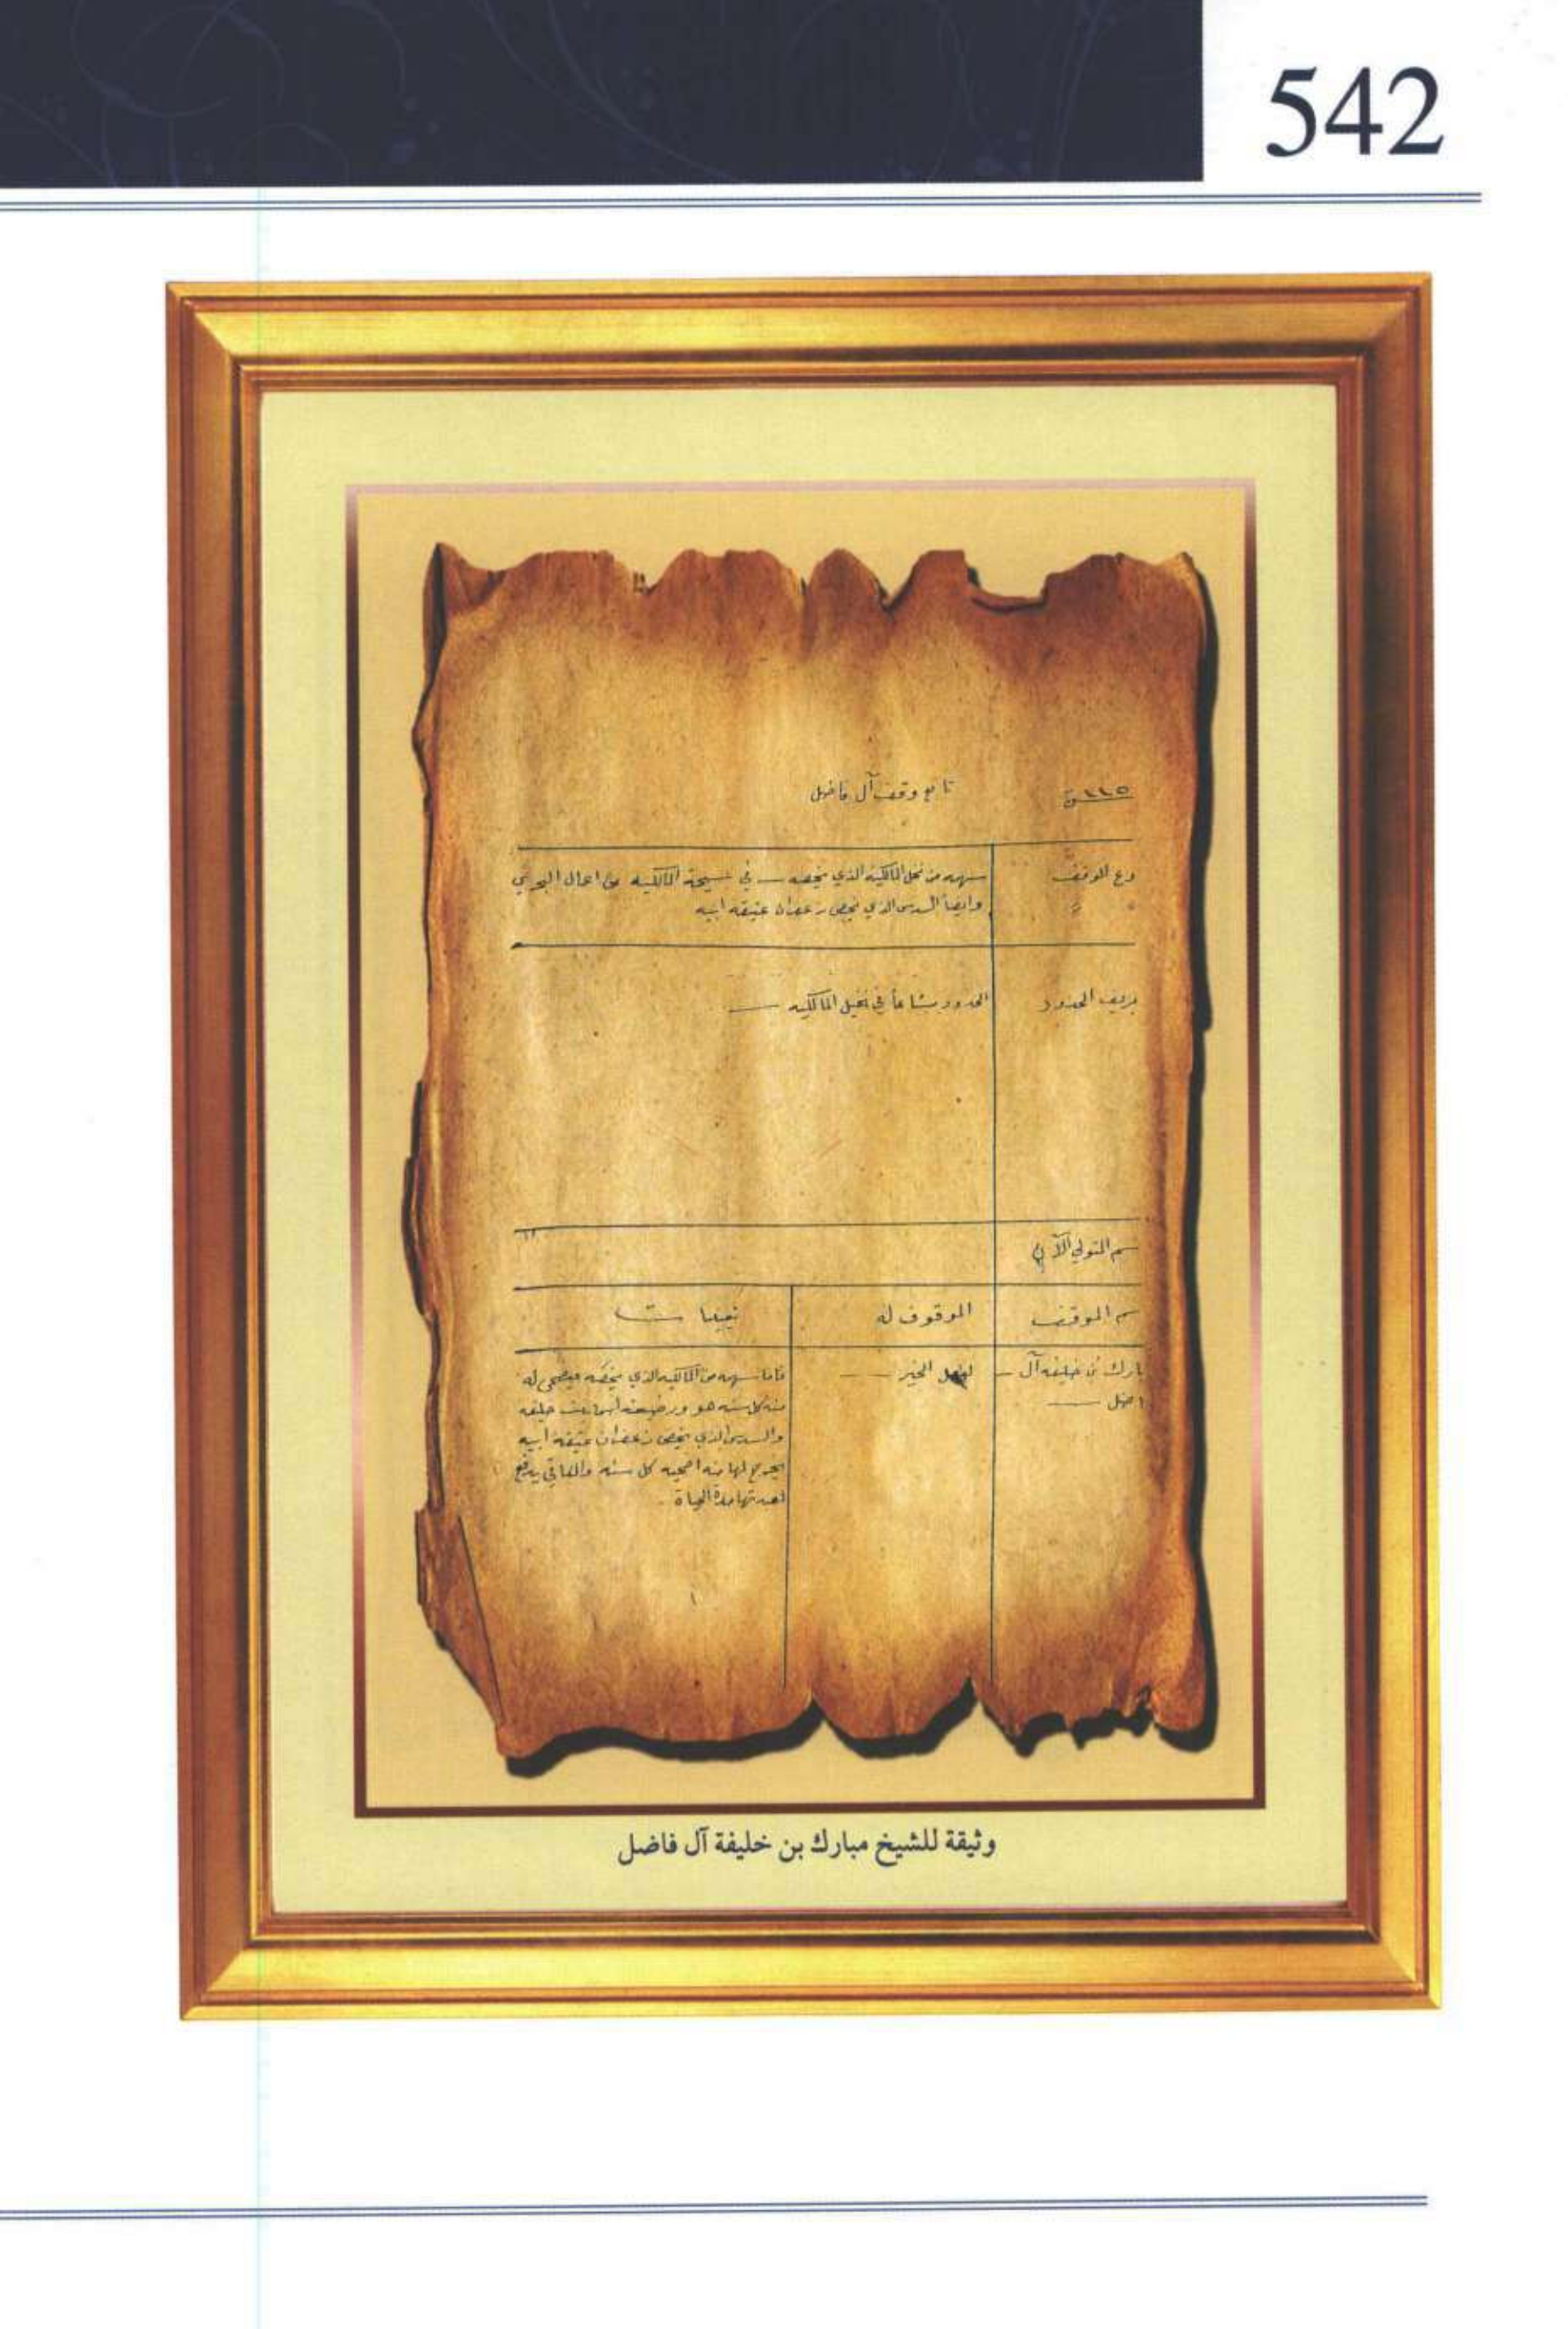 542
تابع وقف آل فاضل
وع الموقف
سهمه من نخل المالكية الذي يخصه في سيحة المالكيه من اعمال البحرين
وايضاً السدس الذي يخص زعفران عتيقه ابيه
ريف الحدود
الحدود مشاعاً في نخيل المالكيه
سم المتولي الآن
سم الموقف
الموقوف له
بارك بن خليفه آل
اضل
لفعل الخير
فاما سهمه من المالكيه الذي يخصه فيضحى له
منه كل سنه هو و بنت خليفه
والسدس الذي يخص زعفران عتيقة ابيه
يخرج لها منه اضحيه كل سنه والباقي يدفع
مدة الحياة
وثيقة للشيخ مبارك بن خليفة آل فاضل